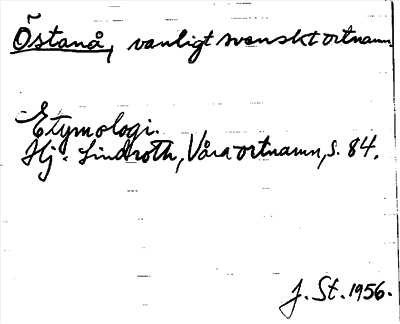 Östanå, vanligt svenskt ortnamn.
Etymologi.
Hj. Lindroth, Våra ortnamn, s. 84.
J. St. 1956.